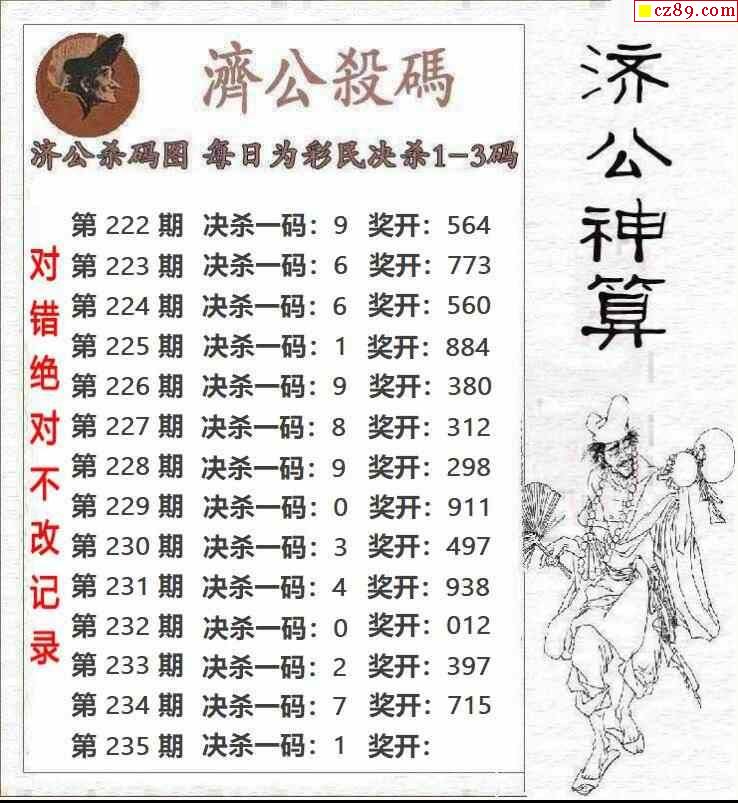 cz89.com
濟公殺碼
济公杀码图 每日为彩民决杀1-3码
第 222 期 决杀一码：9 奖开：564
第 223 期 决杀一码：6 奖开：773
第 224 期 决杀一码：6 奖开：560
第 225 期 决杀一码：1 奖开：884
第 226 期 决杀一码：9 奖开：380
第 227 期 决杀一码：8 奖开：312
第 228 期 决杀一码：9 奖开：298
第 229 期 决杀一码：0 奖开：911
第 230 期 决杀一码：3 奖开：497
第 231 期 决杀一码：4 奖开：938
第 232 期 决杀一码：0 奖开：012
第 233 期 决杀一码：2 奖开：397
第 234 期 决杀一码：7 奖开：715
第 235 期 决杀一码：1 奖开：
对错绝对不改记录
济公神算